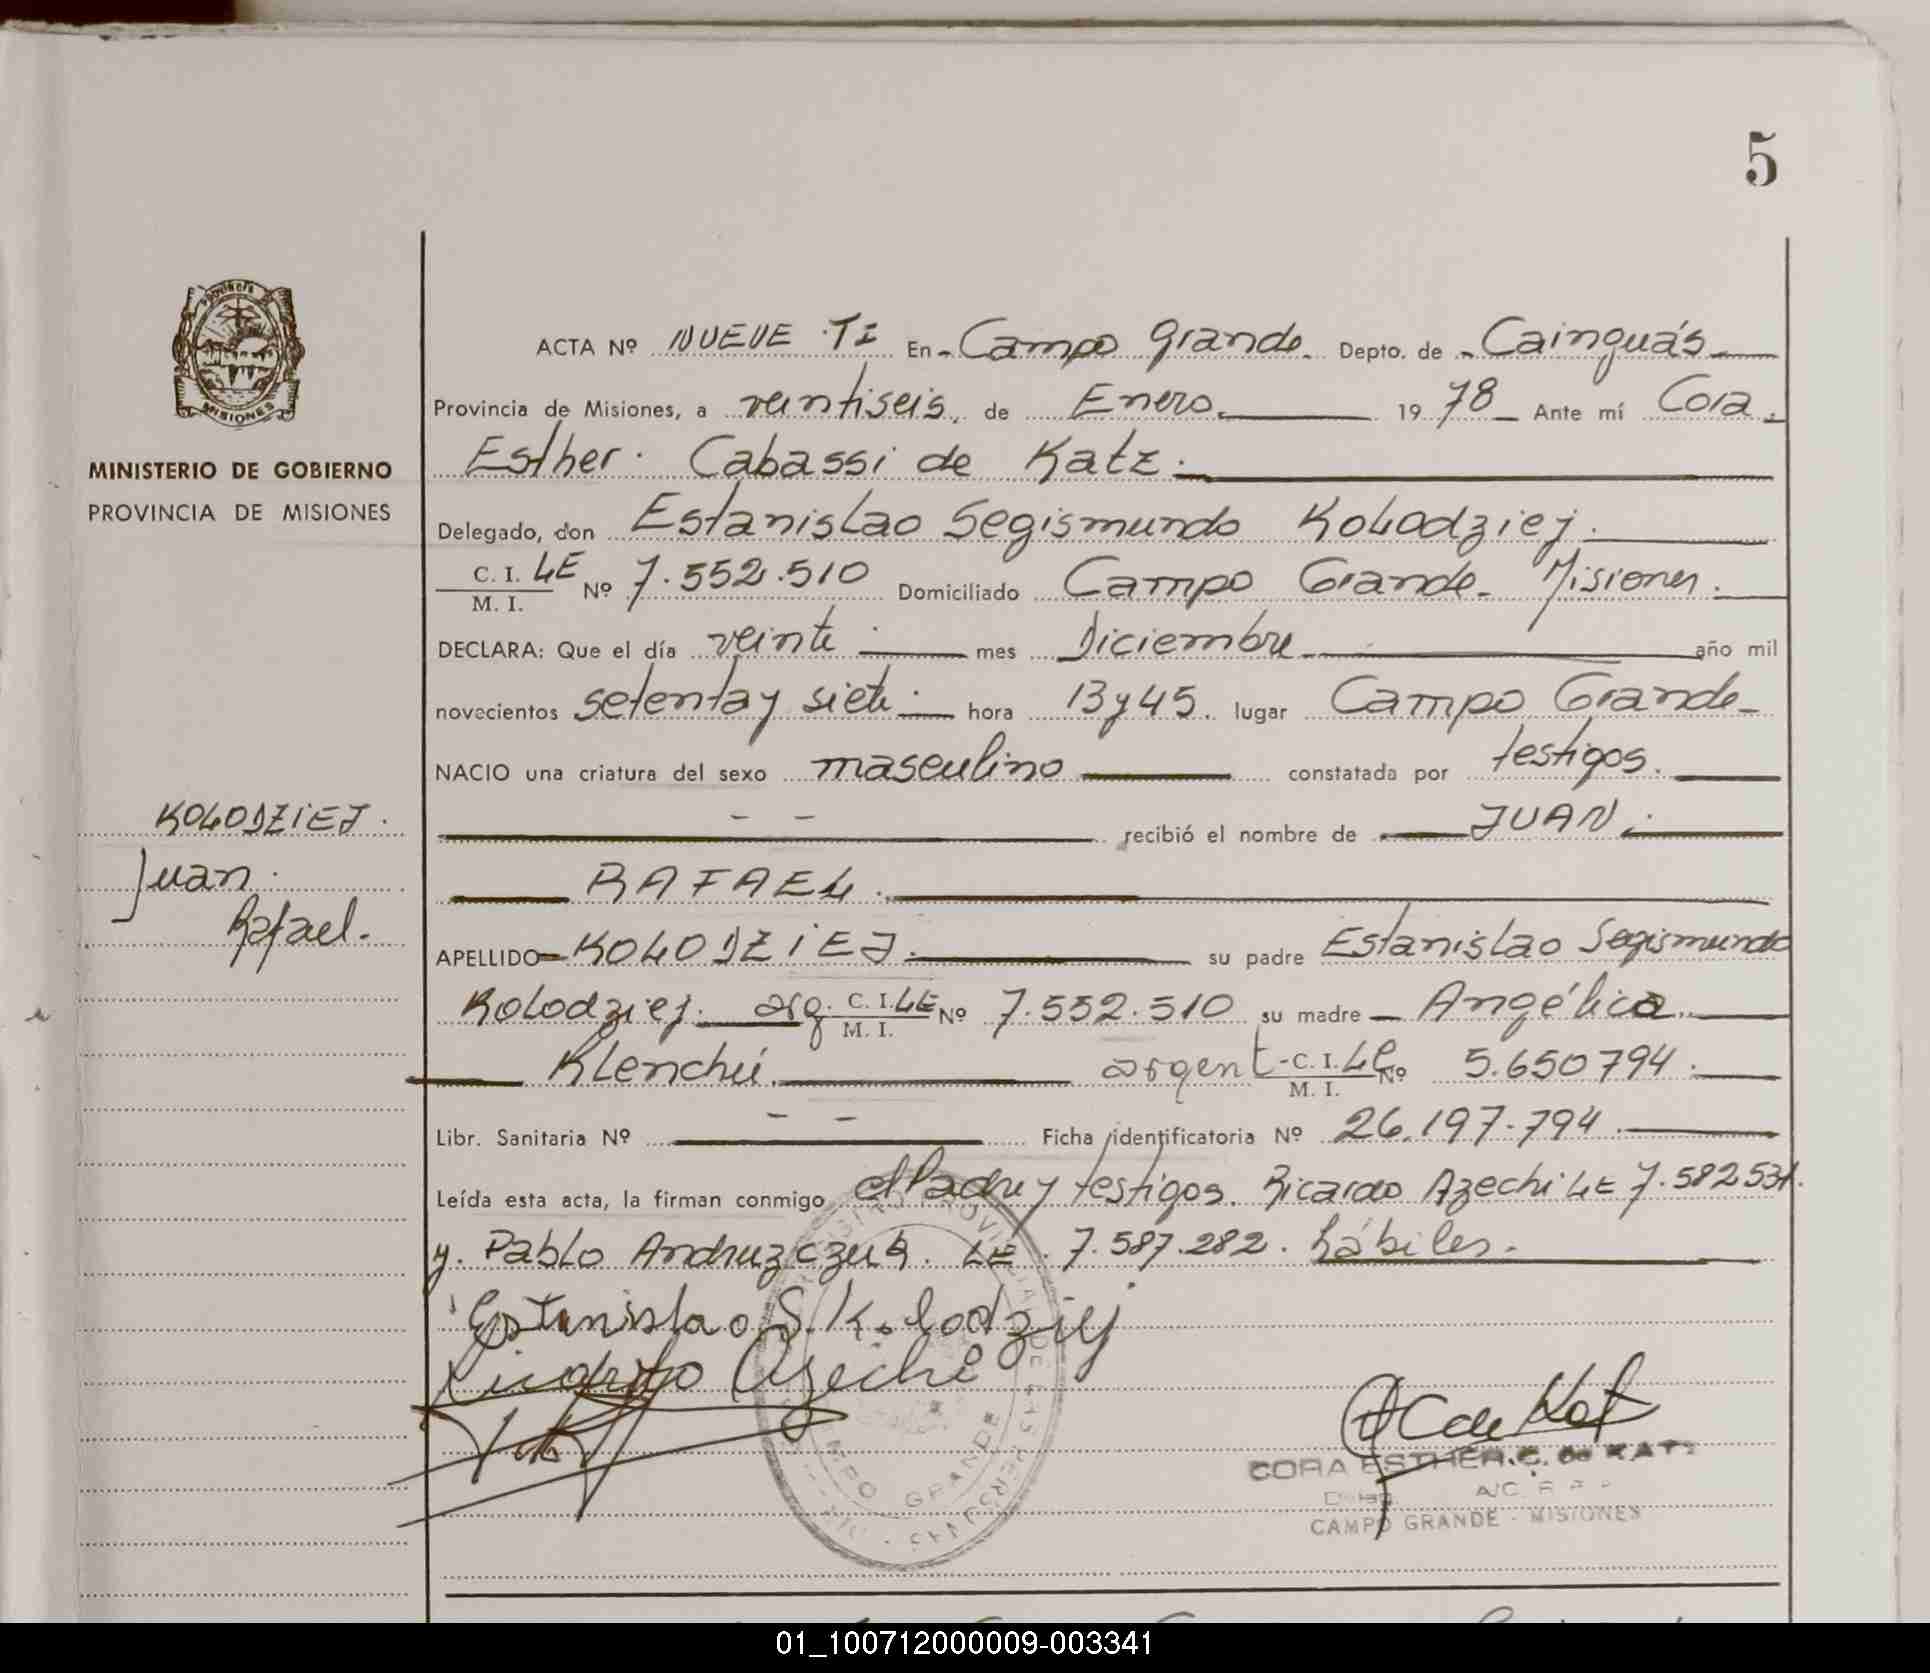 5
PROVINCIA DE
MISIONES
MINISTERIO DE GOBIERNO
PROVINCIA DE MISIONES
KOLODZIEJ.
Juan.
Rafael.
ACTA Nº NUEVE TI En - Campo Grande. Depto. de - Cainguás
Provincia de Misiones, a veintiseis, de Enero. 1978 Ante mí Cora
Esther. Cabassi de Katz.
Delegado, don Estanislao Segismundo Kolodziej.
C. I. LE Nº 7.552.510 Domiciliado Campo Grande - Misiones.
M. I.
DECLARA: Que el día veinte mes Diciembre año mil
novecientos setenta y siete hora 13 y 45. lugar Campo Grande -
NACIO una criatura del sexo masculino constatada por testigos.
- - recibió el nombre de JUAN
RAFAEL.
APELLIDO - KOLODZIEJ. su padre Estanislao Segismundo
Kolodziej. arg. C. I. LE Nº 7.552.510 su madre - Angélica
M. I.
Klenchú. argent - C. I. LC Nº 5.650794.
M. I.
Libr. Sanitaria Nº - - Ficha identificatoria Nº 26.197.794.
Leída esta acta, la firman conmigo el Padre y testigos. Ricardo Azechi LE 7.582531.
y. Pablo Andruzczuk. LE. 7.587.282. hábiles.
Estanislao S. Kolodziej
Ricardo Azechi
CAMPO GRANDE
A C de Kat
CORA ESTHER C. de KATZ
CAMPO GRANDE - MISIONES
01_100712000009-003341